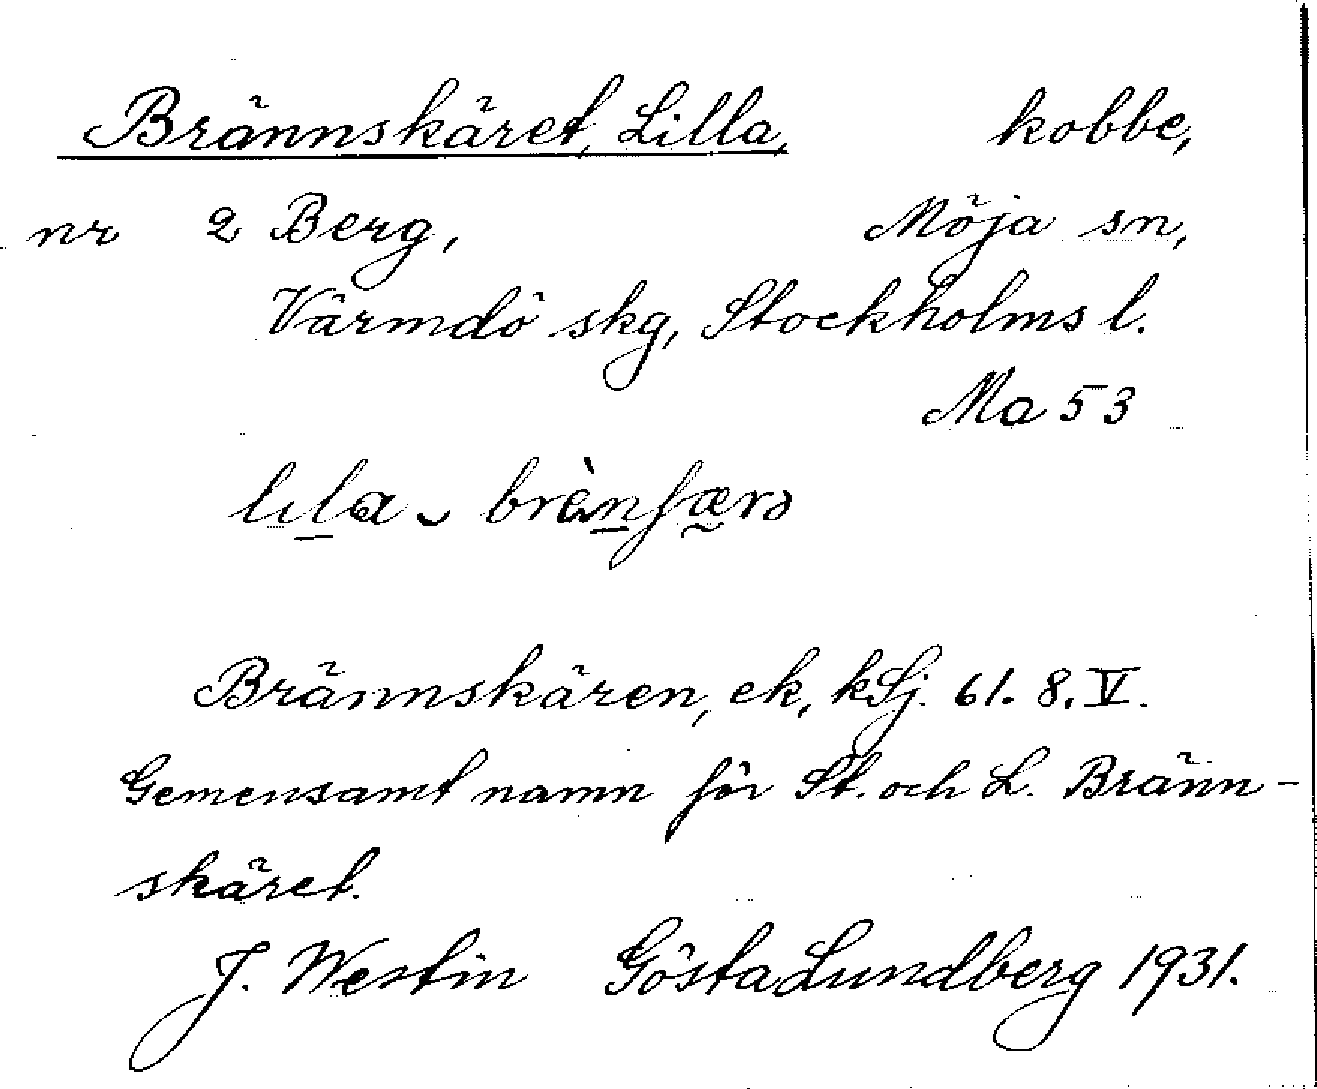 Brännskäret, Lilla, kobbe,
nr 2 Berg, Möja sn,
Värmdö skg, Stockholms l.
Ma 53
Brännskären, ek, kSj. 61. 8. V.
Gemensamt namn för St. och L. Bränn-
skäret.
J. Westin Gösta Lundberg 1931.